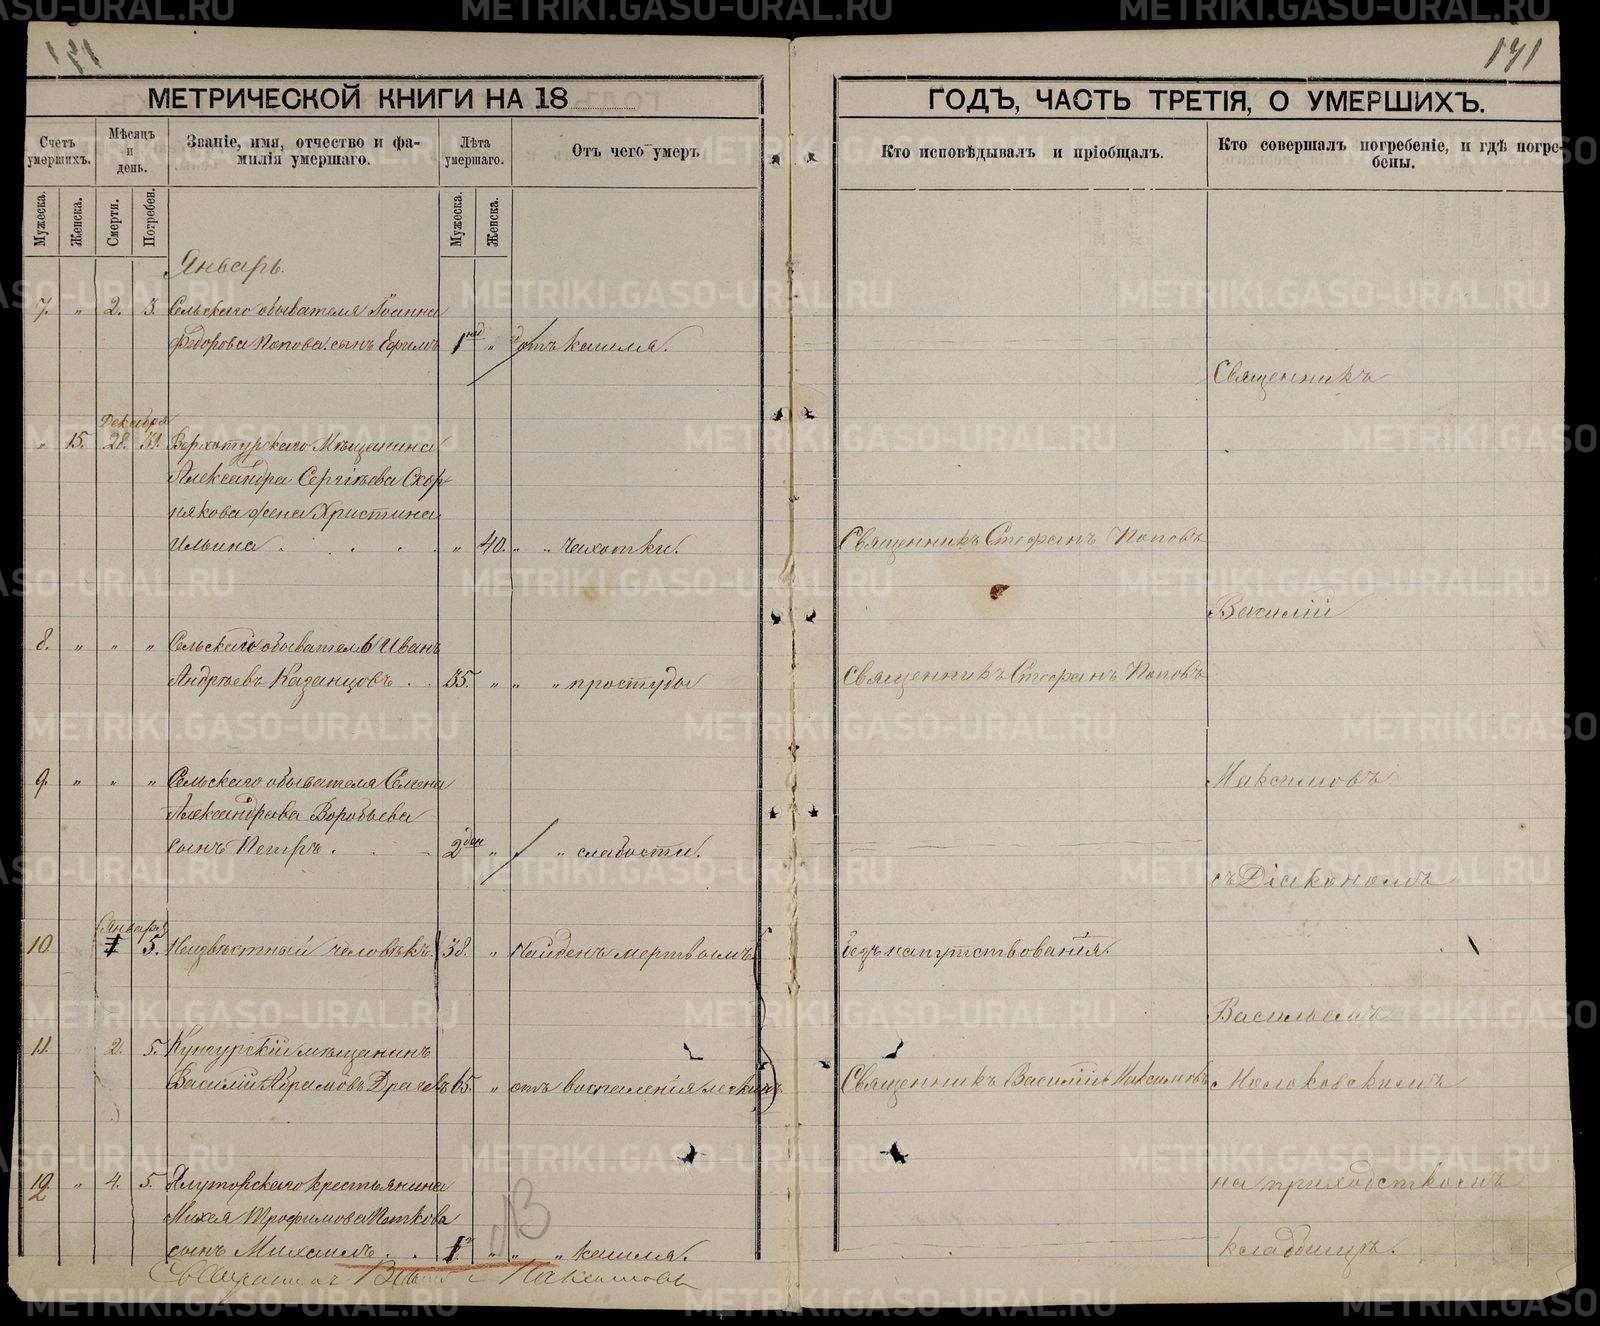 171
МЕТРИЧЕСКОЙ КНИГИ НА 18
ГОДЪ, ЧАСТЬ ТРЕТІЯ, О УМЕРШИХЪ.
Счетъ умершихъ.
Мѣсяцъ и день.
Званіе, имя, отчество и фамилія умершаго.
Лѣта умершаго.
Отъ чего умеръ
Кто исповѣдывалъ и пріобщалъ.
Кто совершалъ погребеніе, и гдѣ погребены.
Мужеска.
Женска.
Смерти.
Погребен.
Мужеска.
Женска.
Январь.
7. " 2. 3. Сельскаго обывателя Іоанна
Федорова Попова сынъ Ефимъ 1 нед " отъ кашля.
Священникъ
Декабря
" 15. 28. 31. Верхотурскаго Мѣщанина
Александра Сергіева Скор-
някова жена Христина
Ильина . . . . " 40. " " чахотки. Священникъ Стефанъ Поповъ
Василій
8. " " " Сельскій обыватель Иванъ
Андреевъ Казанцовъ . . 35. " " " простуды Священникъ Стефанъ Поповъ
Максимовъ
9. " " " Сельскаго обывателя Семена
Александрова Воробьева
сынъ Петръ . . . 2 дн " " слабости.
съ Діакономъ
Января
10 1 5. Неизвѣстный человѣкъ. 38. " Найденъ мертвымъ безъ напутствованія.
Васильемъ
11. 2. 5. Кунгурскій мѣщанинъ
Василій Абрамовъ 65. " отъ воспаленія легкихъ Священникъ Василій Максимовъ
12 " 4. 5. Ялуторскаго крестьянина
на приходскомъ
Трофимова
сынъ Михаилъ . . 1 " " " кашля.
кладбищѣ.
Священникъ Максимовъ